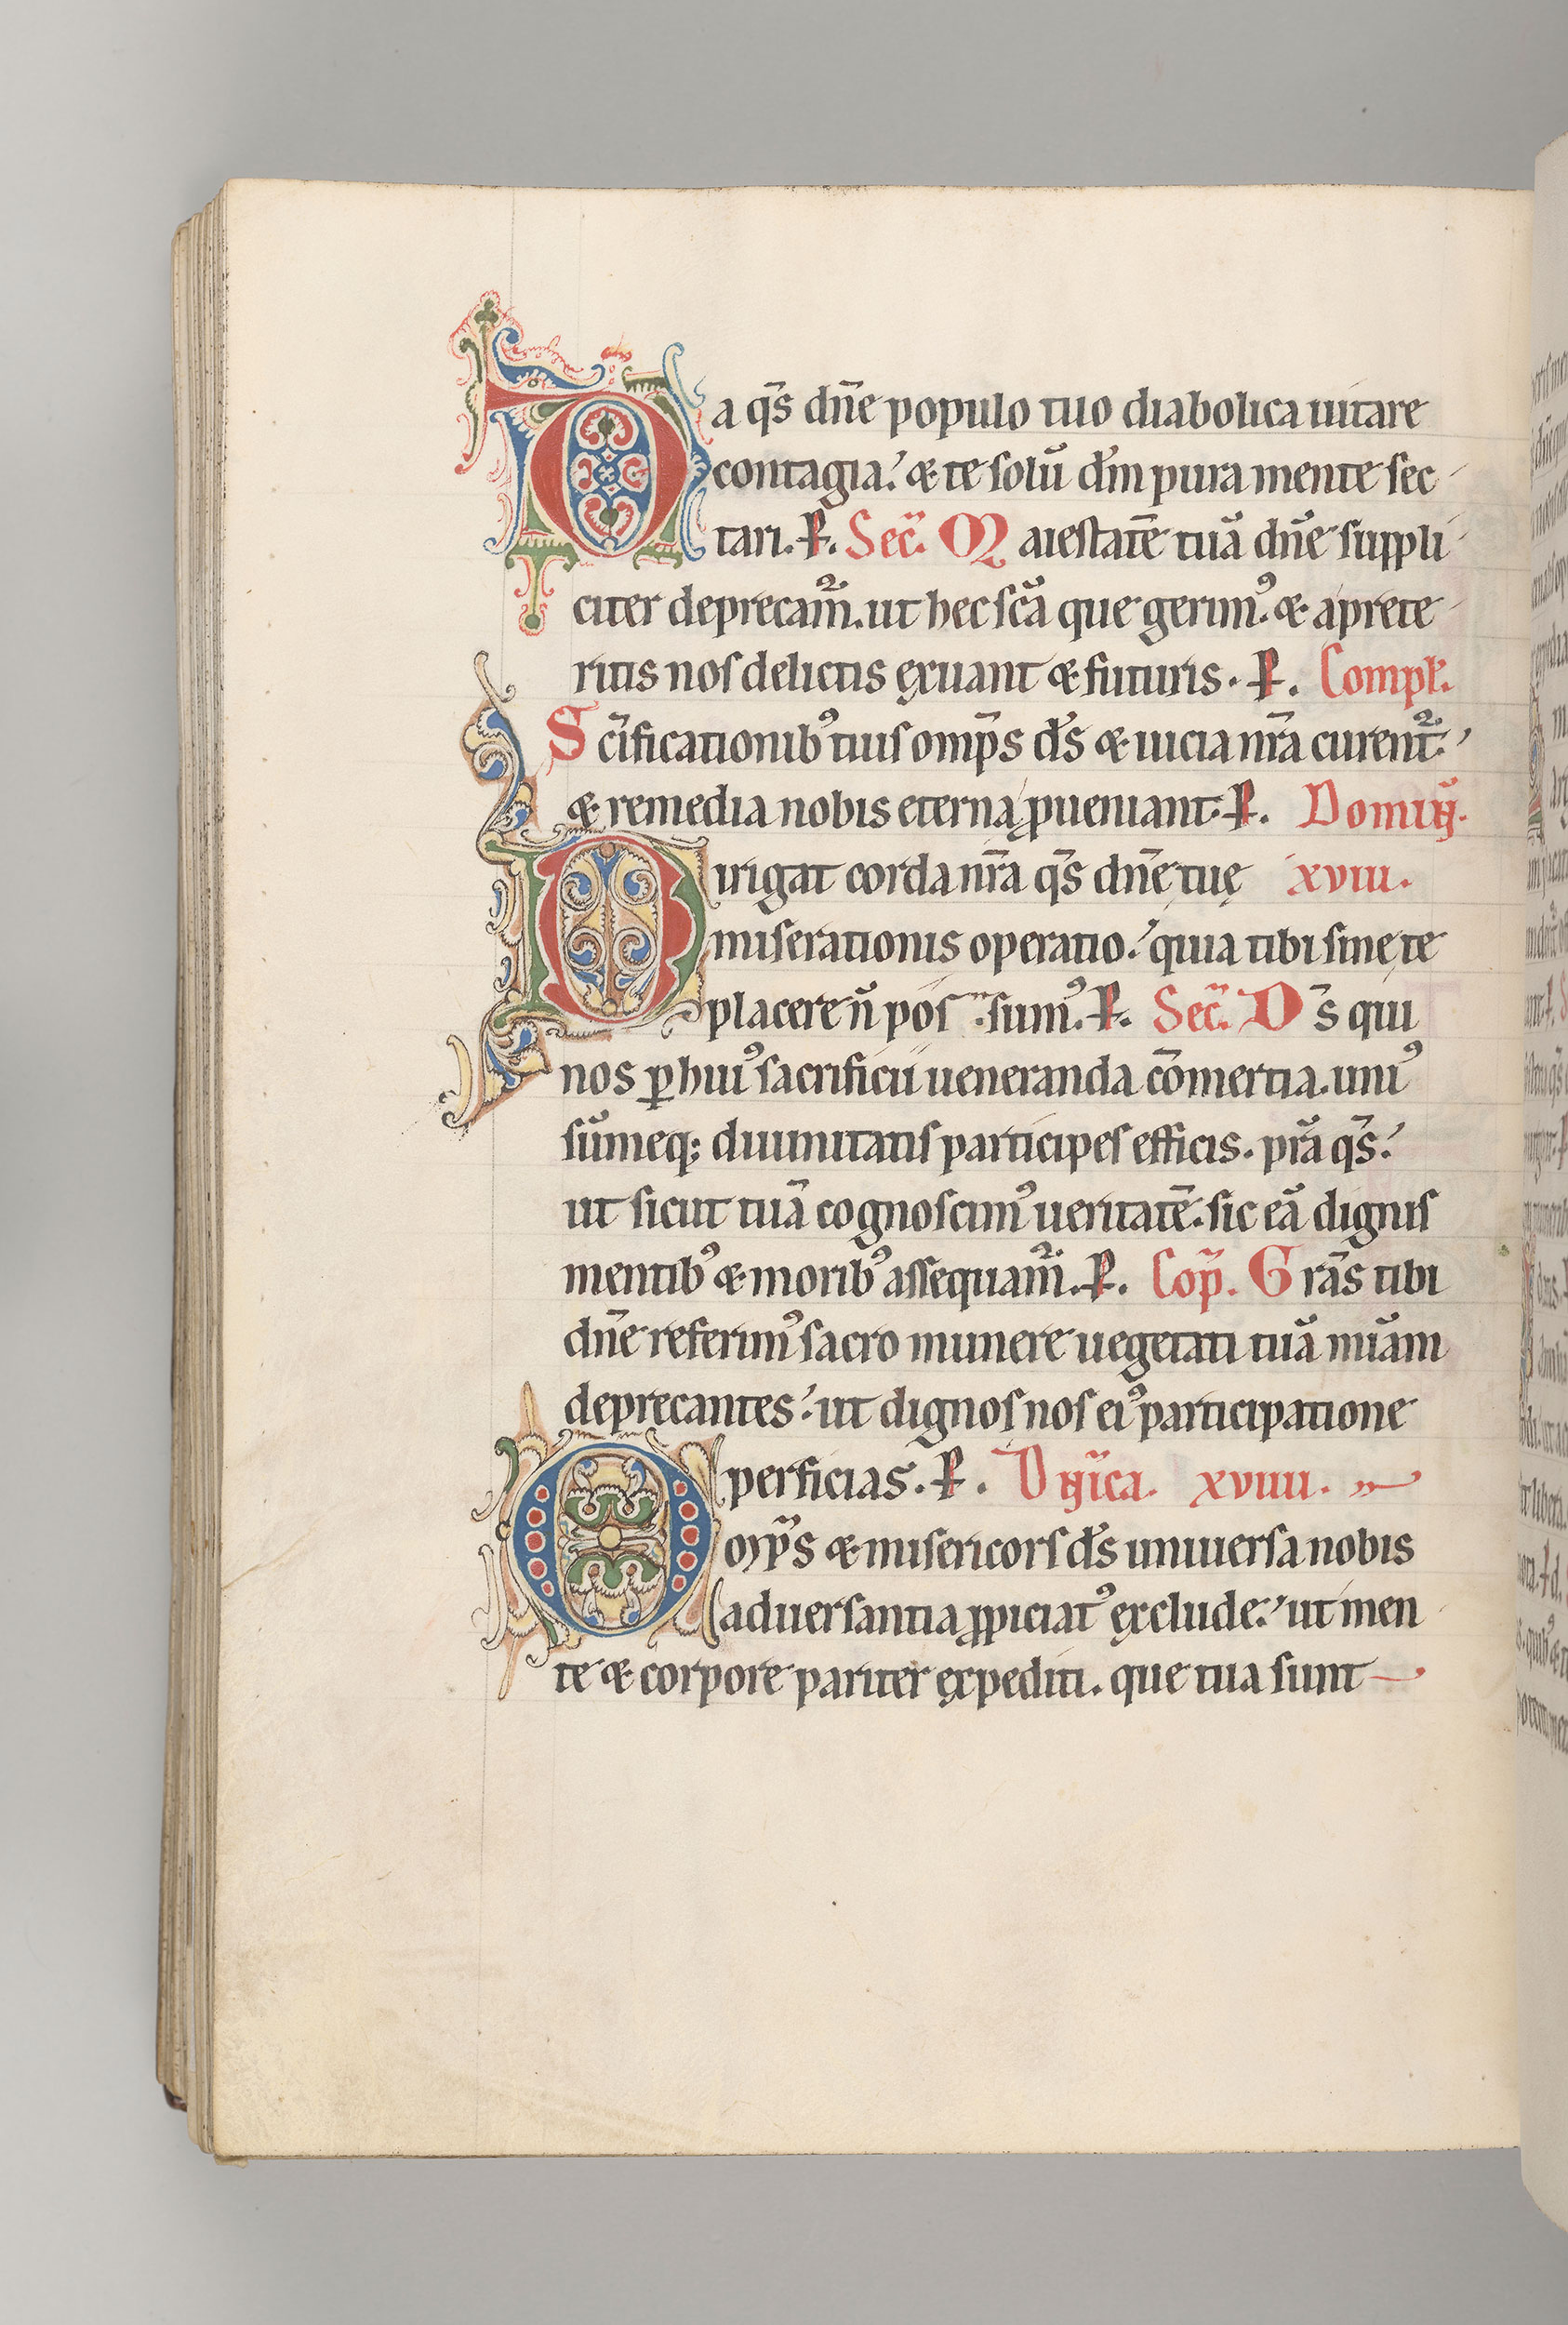 Da q̄s dn̄e populo tuo diabolica uitare
contagia. & te solū dm̄ pura mente sec
tari. P. Sec̄. Maiestatē tuā dn̄e suppli
citer deprecam̄. ut hec sc̄a que gerim᾽. & a prete
ritis nos delictis exuant & futuris. P. Compl̄.
Sc̄ificationib᾽ tuis omp̄s ds̄ & uicia nr̄a curent.
& remedia nobis eterna ꝓueniant. P. Domin̄.
Dirigat corda nr̄a q̄s dn̄e tuę xviii.
miserationis operatio. quia tibi sine te
placere n̄ pos sum᾽. P. Sec̄. Ds̄ qui
nos ꝑ hui᾽ sacrificii ueneranda cōmertia. uni᾽
sūmeq; diuinitatis participes efficis. pr̄a q̄s.
ut sicut tuā cognoscim᾽ ueritatē. sic eā dignis
mentib᾽ & morib᾽ assequam̄. P. Cop̄. Grās tibi
dn̄e referim᾽ sacro munere uegetati tuā mīam
deprecantes. ut dignos nos ei᾽ participatione
perficias. P. Dn̄ica. xviiii.
Omp̄s & misericors ds̄ uniuersa nobis
aduersantia ꝓpiciat᾽ exclude. ut men
te & corpore pariter expediti. que tua sunt